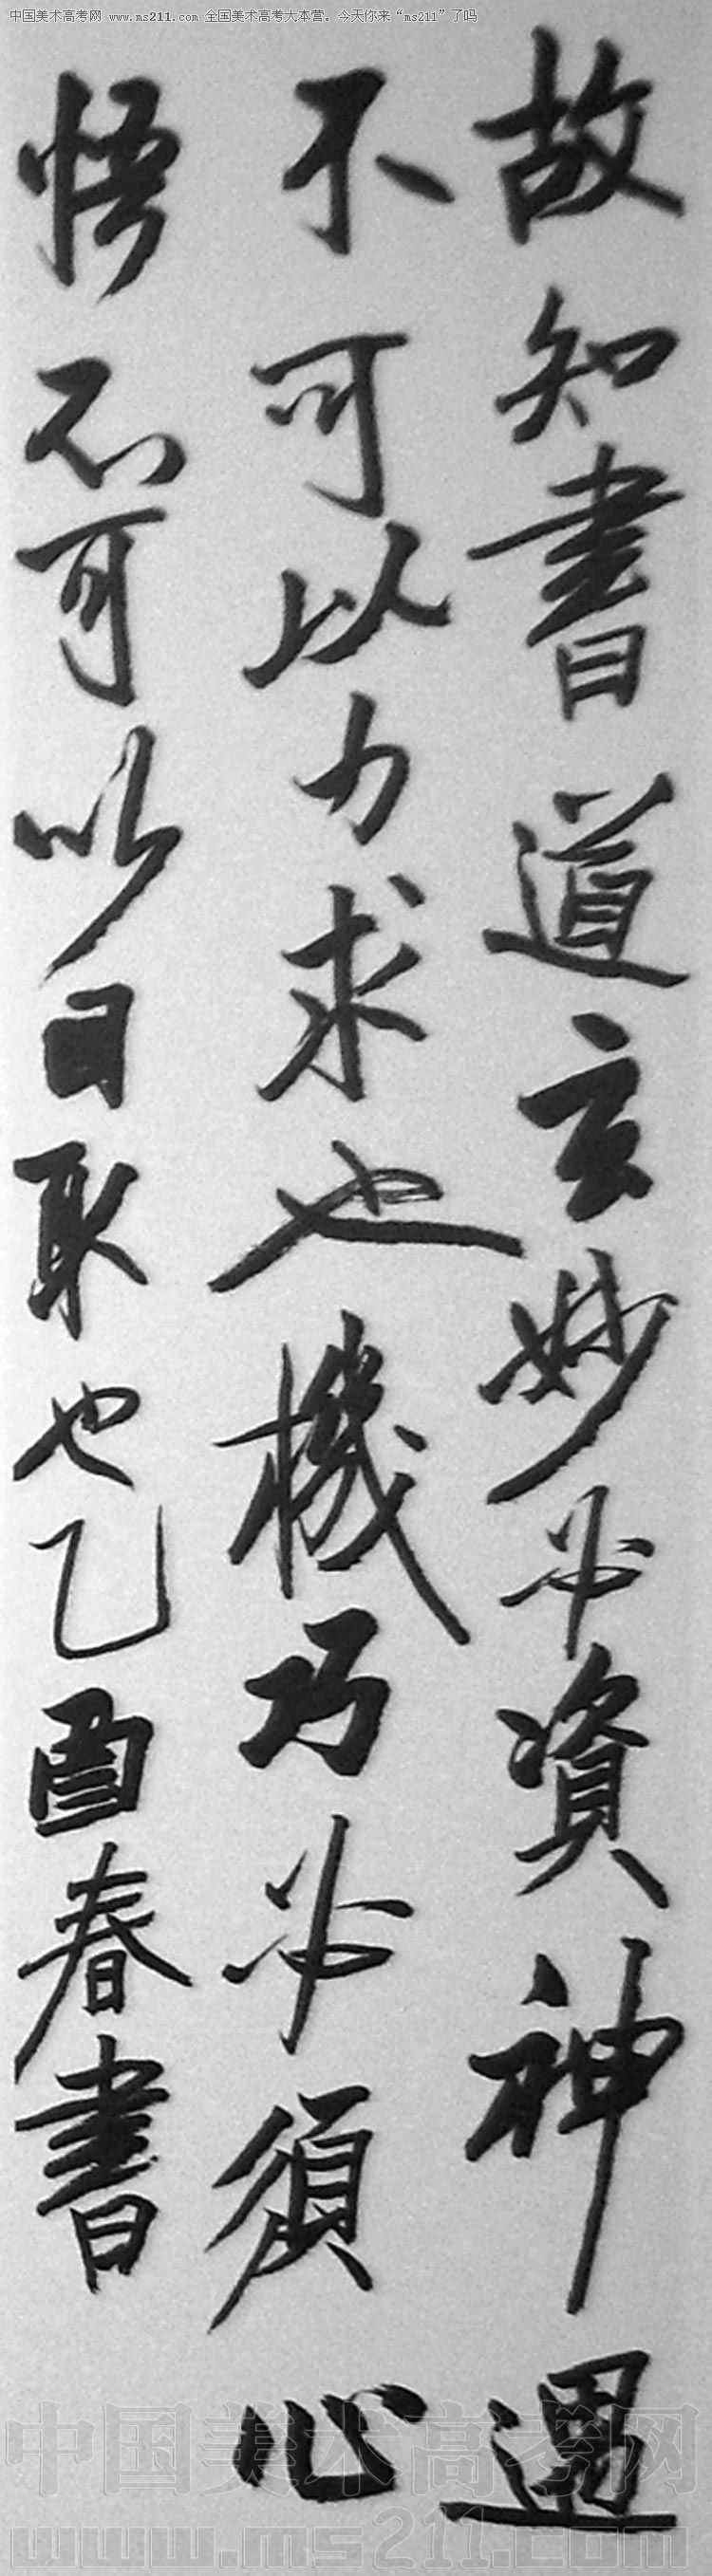 中国美术高考网 www.ms211.com 全国美术高考大本营。今天你来“ms211”了吗
故知書道玄妙必資神遇
不可以力求也機巧必須心
悟不可以目取也乙酉春書
中国美术高考网
www.ms211.com